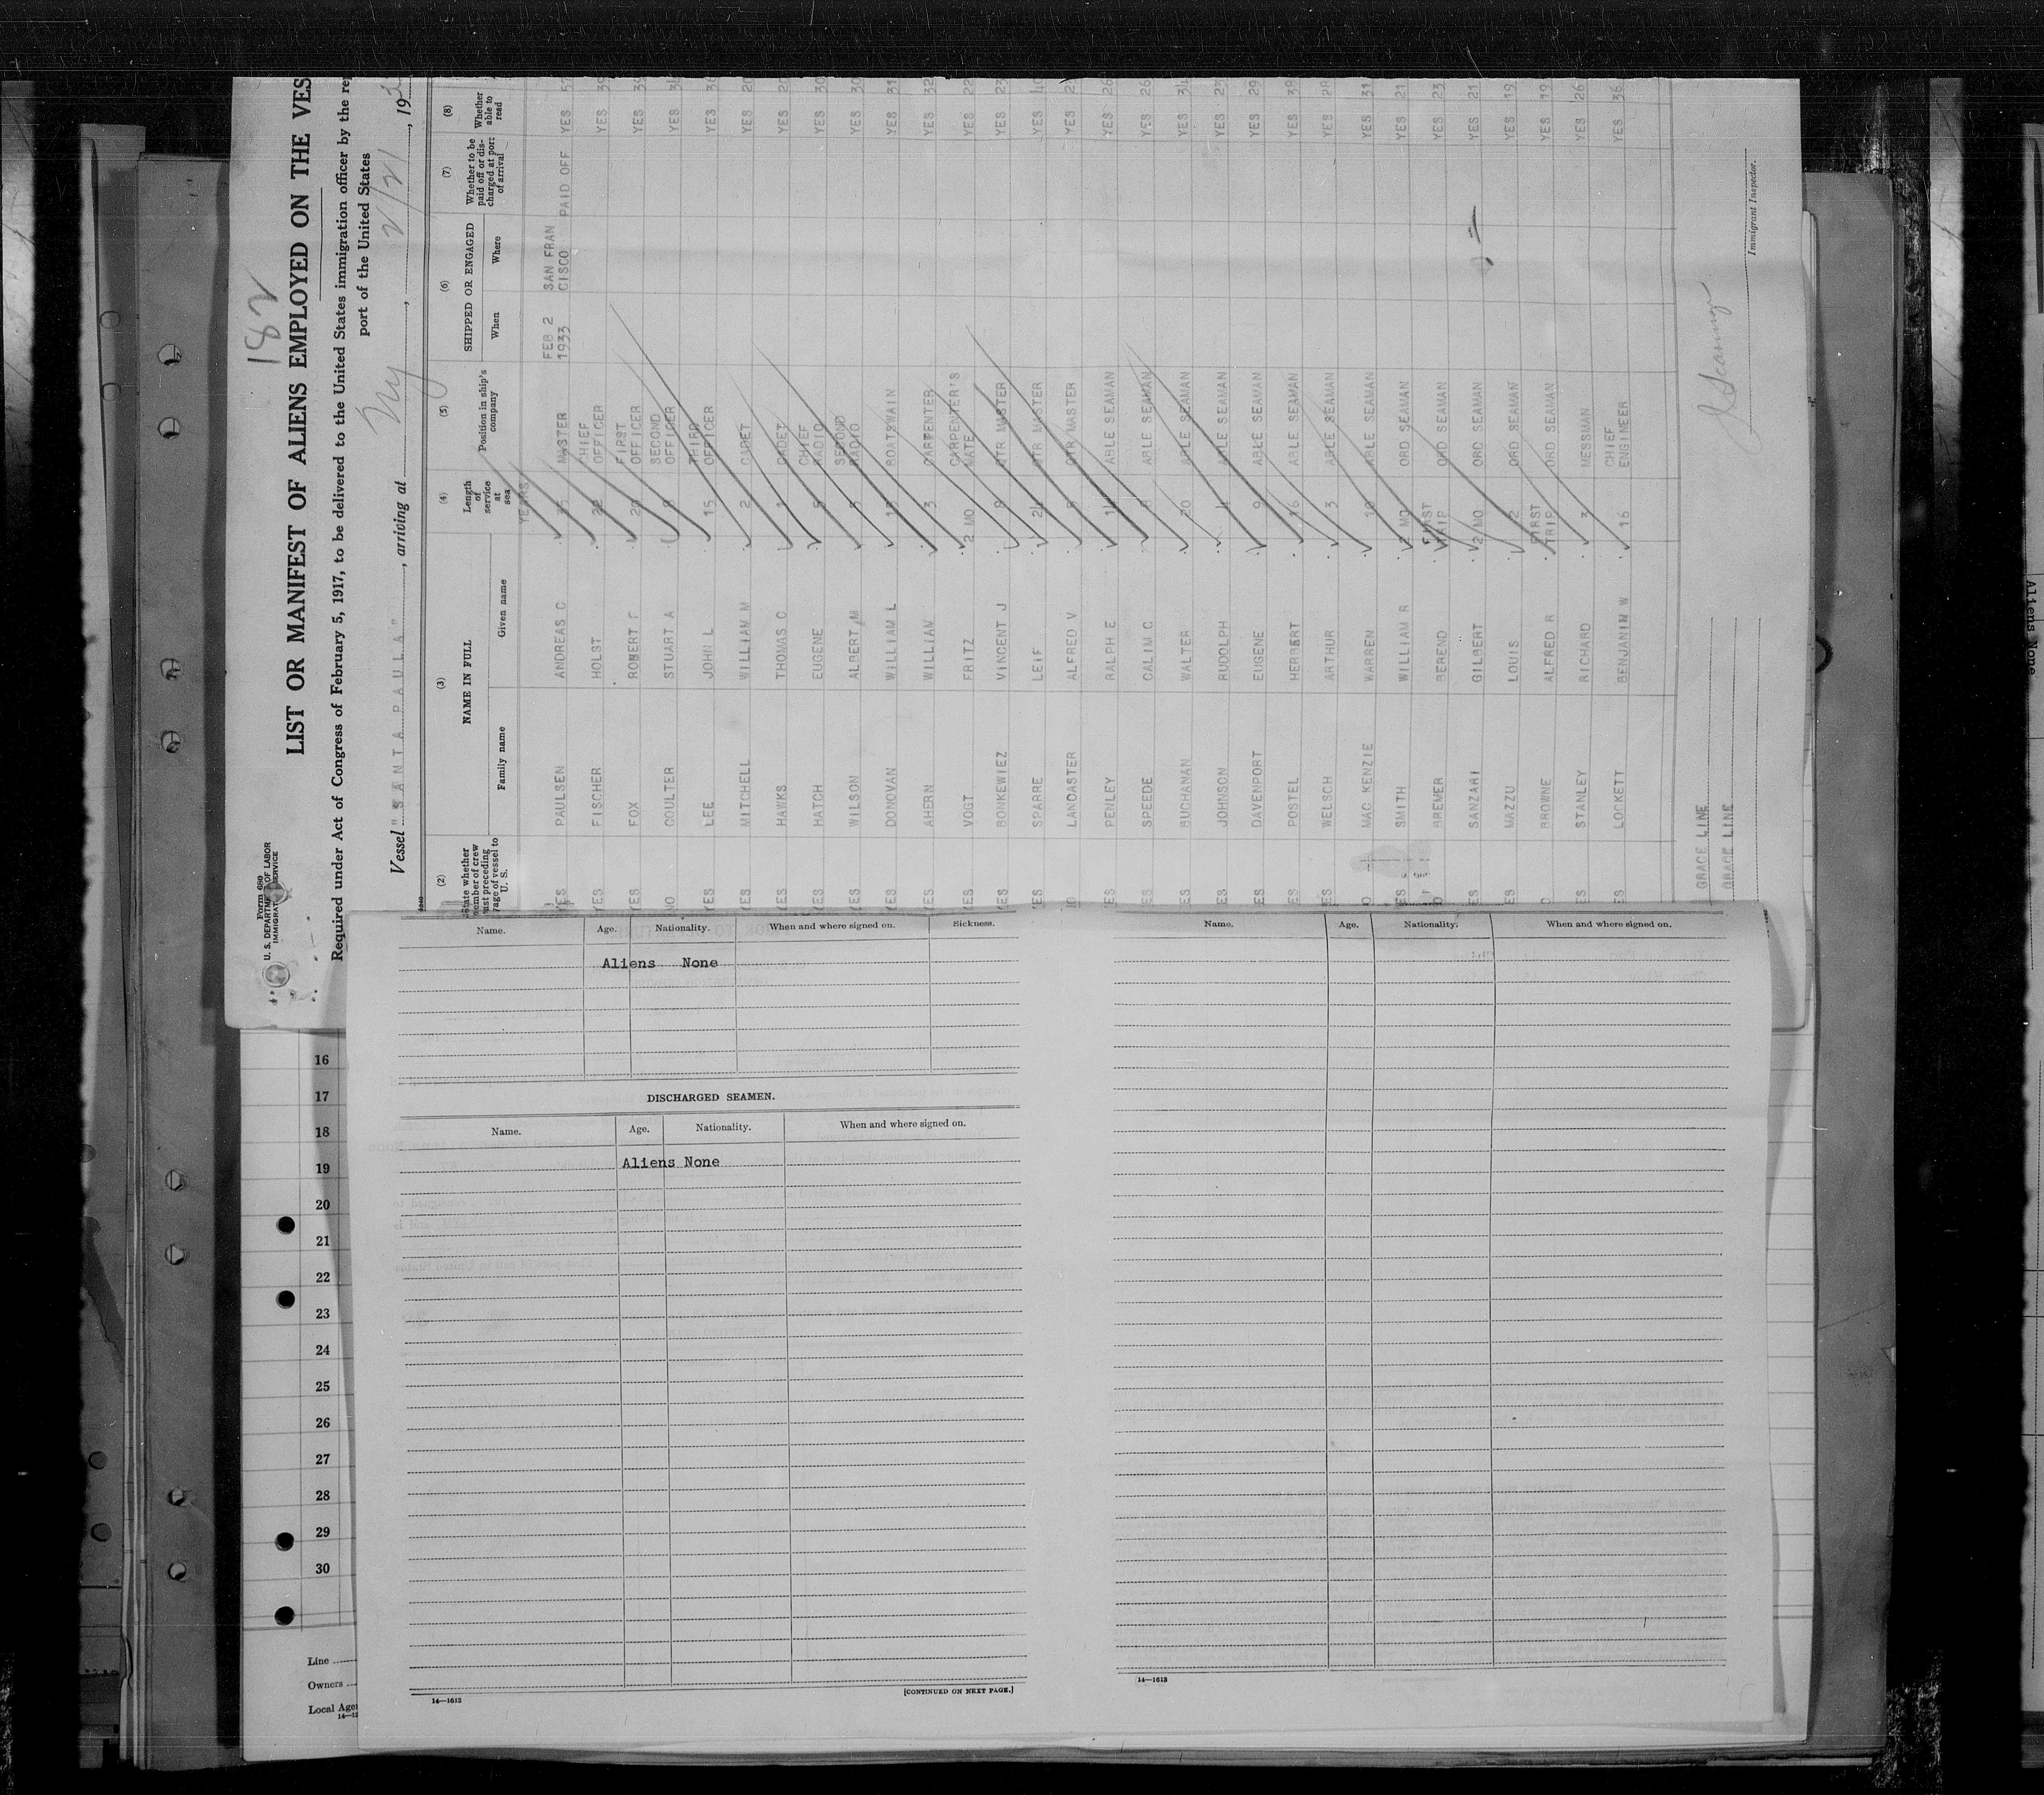 182
Form 680
U. S. DEPARTMENT OF LABOR
IMMIGRATION SERVICE
LIST OR MANIFEST OF ALIENS EMPLOYED ON THE VES
Required under Act of Congress of February 5, 1917, to be delivered to the United States immigration officer by the re
port of the United States
Vessel "SANTA PAULA", arriving at Ny, 2/21, 193
(2) (3) (4) (5) (6) (7) (8)
State whether member of crew last preceding voyage of vessel to U. S.
NAME IN FULL
Family name Given name
Length of service at sea
Position in ship's company
SHIPPED OR ENGAGED
When Where
Whether to be paid off or discharged at port of arrival
Whether able to read
YEARS
YES PAULSEN ANDREAS C 35 MASTER FEB 2 1933 SAN FRANCISCO PAID OFF YES 57
YES FISCHER HOLST 22 CHIEF OFFICER YES 39
YES FOX ROBERT F 20 FIRST OFFICER YES
NO COULTER STUART A FIRST SECOND OFFICER YES
YES LEE JOHN L 15 THIRD OFFICER YES 36
YES MITCHELL WILLIAM M 2 CADET YES 20
YES HAWKS THOMAS C 1 CADET YES 20
YES HATCH EUGENE 5 CHIEF RADIO YES 30
YES WILSON ALBERT M SECOND RADIO YES 30
YES DONOVAN WILLIAM L 15 BOATSWAIN YES 31
YES AHERN WILLIAM 3 CARPENTER YES 32
YES VOGT FRITZ 2 MO CARPENTER'S MATE YES 22
YES BONKEWIEZ VINCENT J QTR MASTER YES 23
YES SPARRE LEIF 24 QTR MASTER YES
NO LANCASTER ALFRED V QTR MASTER YES
YES PENLEY RALPH E 14 ABLE SEAMAN YES 26
YES SPEEDE COLIM C ABLE SEAMAN YES 26
YES BUCHANAN WALTER 20 ABLE SEAMAN YES 34
YES JOHNSON RUDOLPH 4 ABLE SEAMAN YES 23
YES DAVENPORT EUGENE 9 ABLE SEAMAN YES 29
YES POSTEL HERBERT 16 ABLE SEAMAN YES 39
YES WELSCH ARTHUR 3 ABLE SEAMAN YES
MAC KENZIE WARREN 10 ABLE SEAMAN YES 31
YES SMITH WILLIAM R 2 MO ORD SEAMAN YES 21
BREMER BEREND FIRST TRIP ORD SEAMAN YES 23
YES SANZARI GILBERT 2 MO ORD SEAMAN YES 21
YES MAZZU LOUIS 2 ORD SEAMAN YES 19
BROWNE ALFRED R FIRST TRIP ORD SEAMAN YES 19
YES STANLEY RICHARD 3 MESSMAN YES 26
YES LOCKETT BENJAMIN W 16 CHIEF ENGINEER YES 36
GRACE LINE
GRACE LINE
Immigrant Inspector.
Name. Age. Nationality. When and where signed on. Sickness.
Aliens None
DISCHARGED SEAMEN.
Name. Age. Nationality. When and where signed on.
Aliens None
14—1613
[CONTINUED ON NEXT PAGE.]
Name. Age. Nationality. When and where signed on.
14—1613
16
17
18
19
20
21
22
23
24
25
26
27
28
29
30
Line
Owners
Local Age
Aliens None